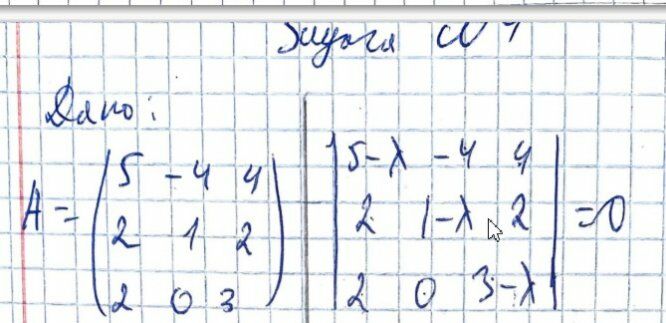 Задача №4
Дано:
A = (5 -4 4
2 1 2
2 0 3)
|5-λ -4 4
2 1-λ 2
2 0 3-λ| = 0